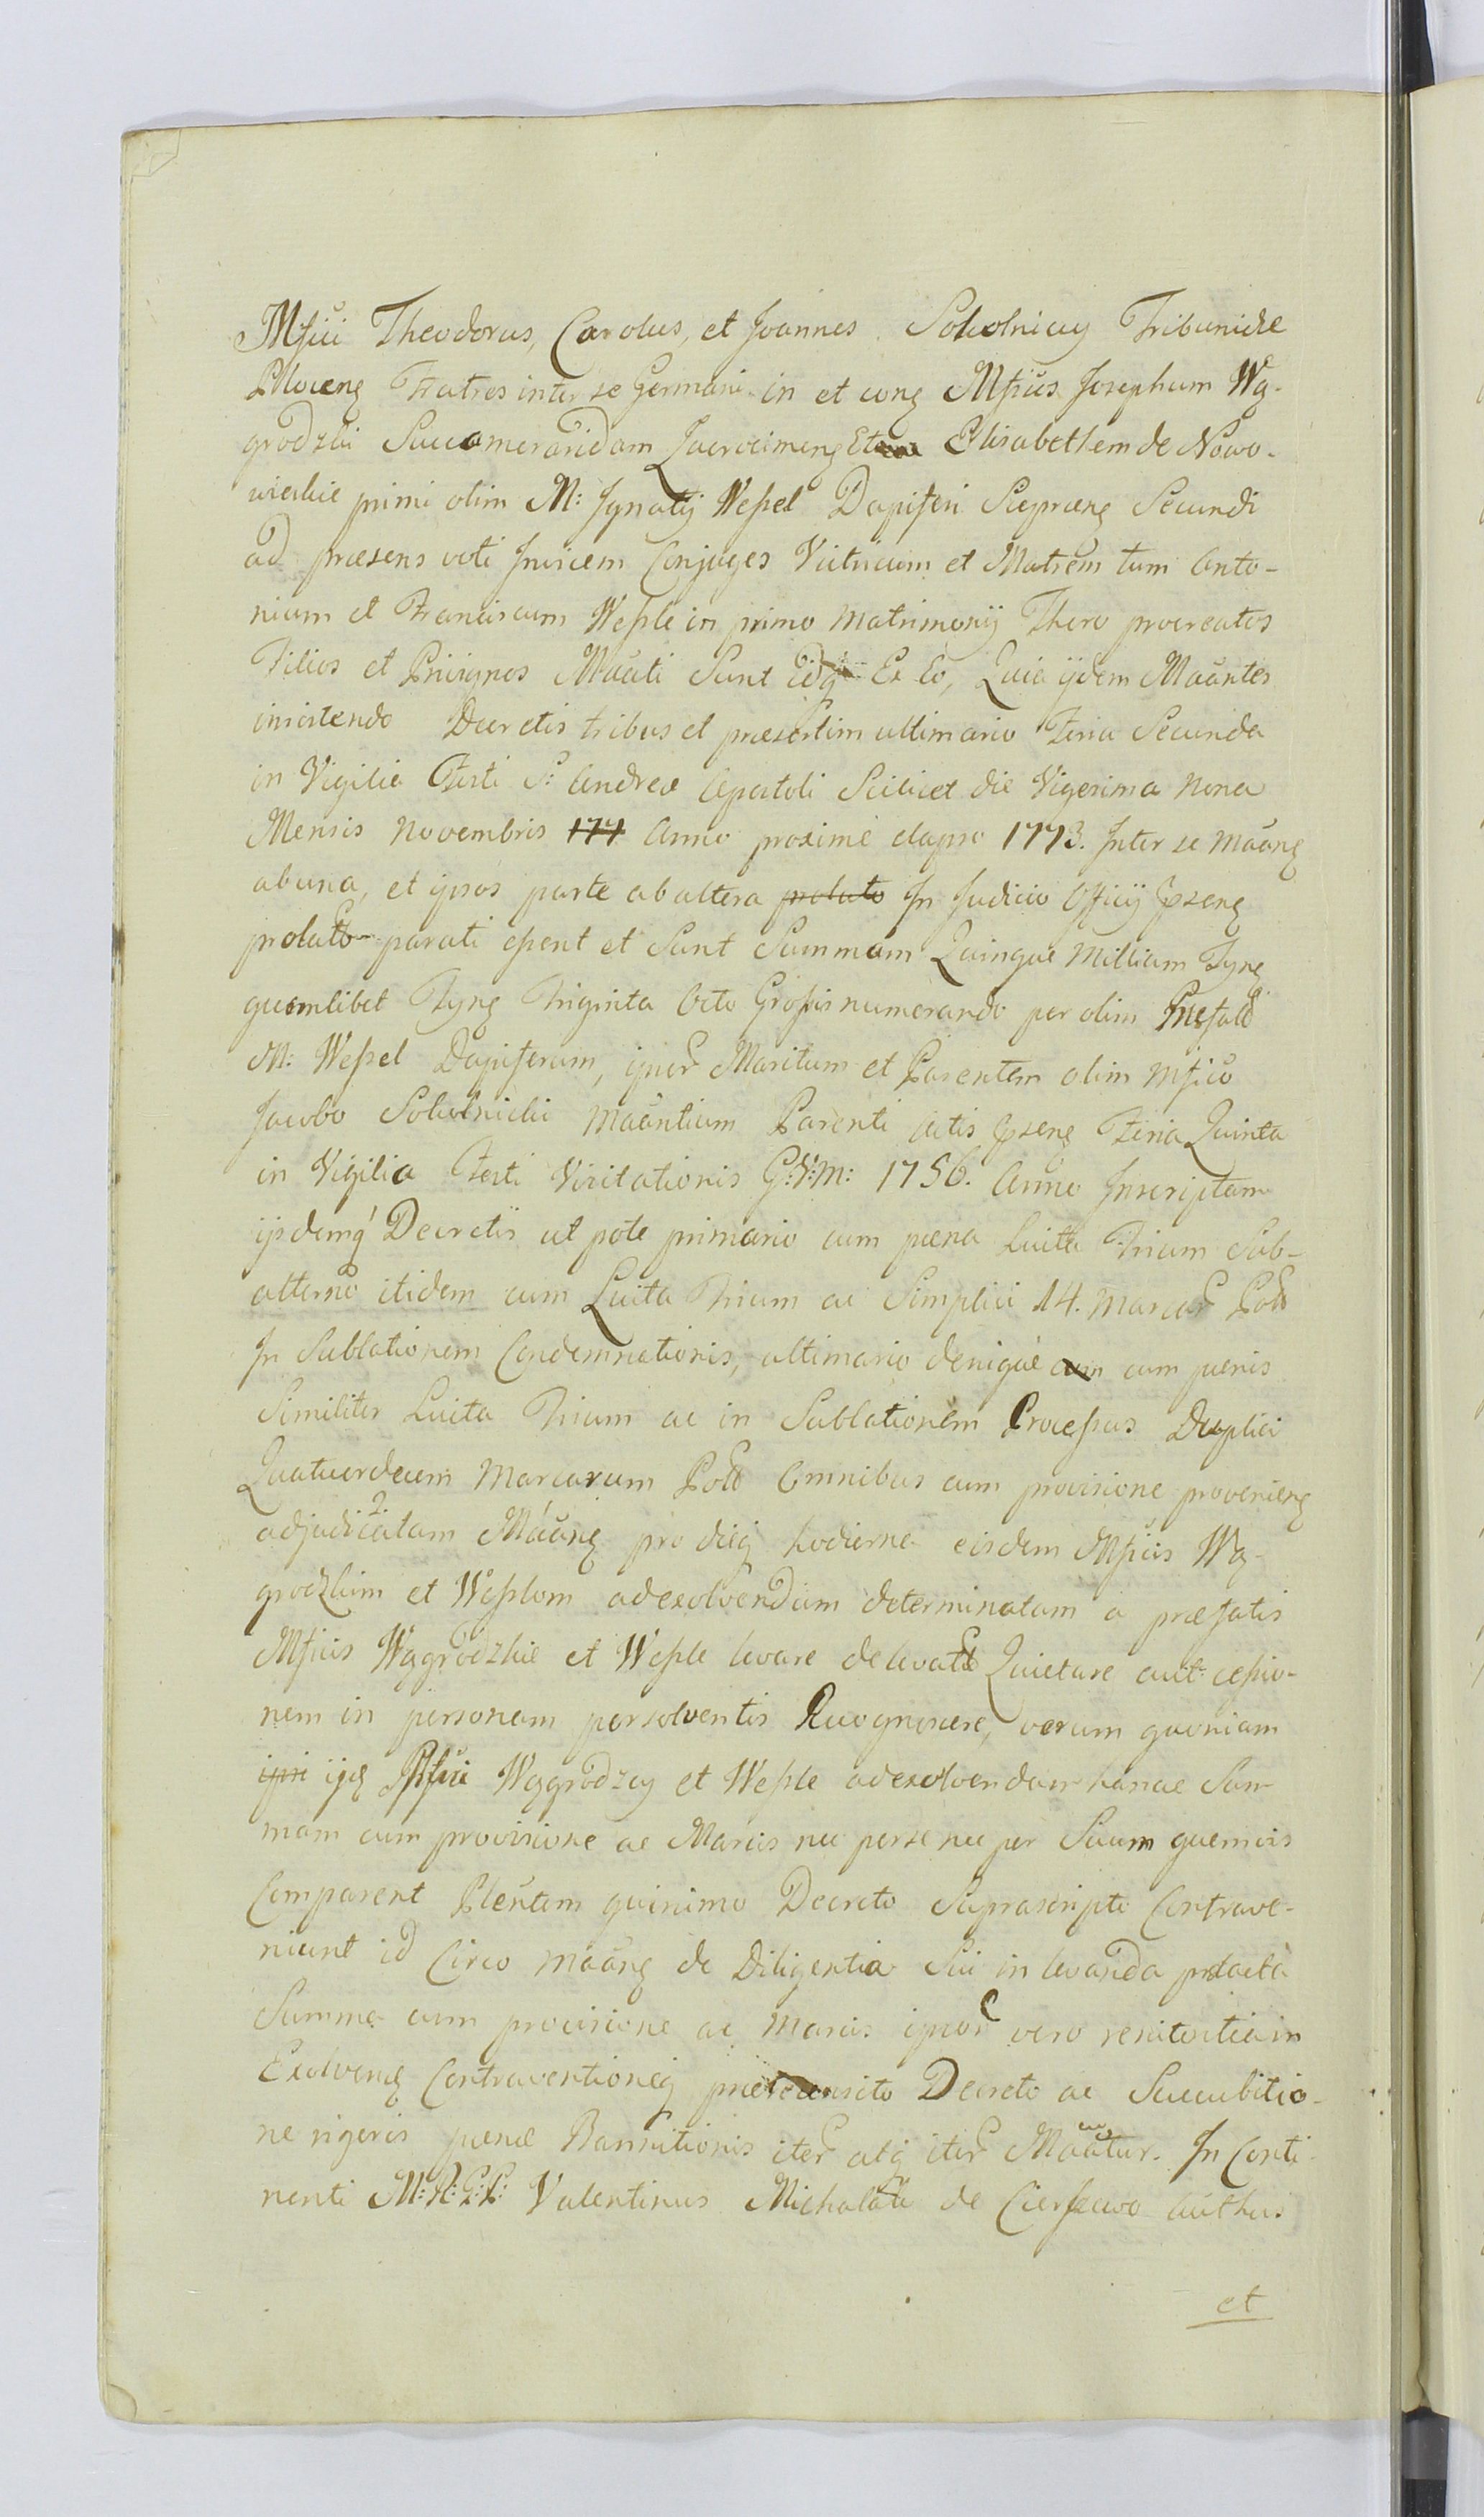 Mfici Theodorus, Carolus, et Joannes Sokolniccy Tribunidæ
Fratres inter se Germani in et cong Mficos Josephum Wą-
grodzki Succameraridam et Elisabethem de Nowo-
wieskie primi olim M: Jgnatij Weſsel Dapiferi Secundi
ad præsens voti Jnvicem Conjuges Vitricum et Matrem tum Anto-
nium et Franciscum Weſsle in primo Matrimonij Thoro procreatos
Filios et Privignos Maāti Sunt Idq Ex Eo, Quia ijdem Maāntes
insistendo Decretis tribus et præsertim ultimario Feria Secunda
in Vigilia Festi S: Andreæ Apostoli Scilicet die Vigesima Nona
Mensis Novembris 177 Anno proxime elapso 1773. Inter se Maāng
ab una, et ipsos parte ab altera prolato In Judicio Officij
prolato parati eſsent et Sunt Summam Quinque Millium Fyng
quemlibet Fyng Triginta Octo Groſsis numerando per olim Præfatū
M: Weſsel Dapiferum, ipsor Maritum et Parentem olim Mfico
Jacobo Sokolnicki Maāntium Parenti Actis Feria Quinta
in Vigilia Festi Visitationis B:V:M: 1756. Anno Inscriptam
ijsdemq Decretis ut pote primario cum pæna Luita Trium Sub-
alterno itidem cum Luita Trium ac Simplici 14. Marcar Pol
In Sublationem Condemnationis, ultimario denique cum cum pænis
Similiter Luita Trium ac in Sublationem Proceſsus Duplici
Quatuordecim Marcarum Pol Omnibus cum provisione provenieng
adjudicatam Maāng pro dieq hodierna eisdem Mficis Wą-
grodzkim et Weſslom ad exolvendum determinatam a præfatis
Mficis Wągrodzkie et Weſsle levare de levata Quietare aut ceſsio-
nem in personam persolventis Recognoscere, verum quoniam
ipsi Mfici Wągrodzcy et Weſsle ad exolvendam hancce Sum-
mam cum provisione ac Marcis nec per se nec per Suum quemvis
Comparent Plentem quinimo Decreto Suprascripto Contrave-
niunt id Circo Maāng de Diligentia Sui in levanda
Summa cum provisione ac Marcis ipsor vero renitentia in
Exolveng Contraventioneq prærecensito Decreto ac Succubitio-
ne rigoris pænæ Bannitionis iter atq iter Maātur. In Conti-
nenti M:R:G:P: Valentinus Michalski de Authus
et